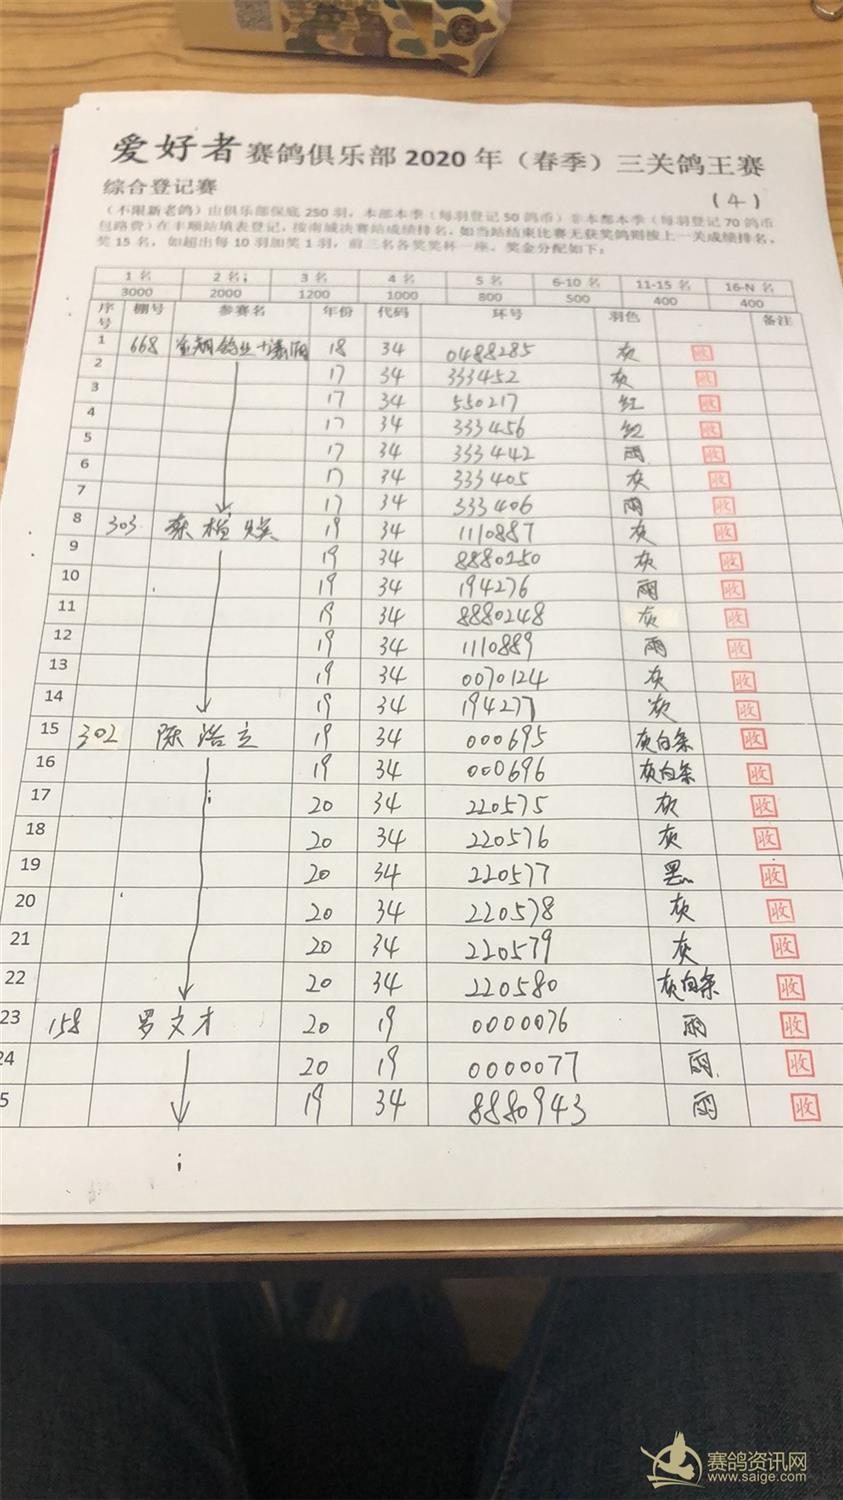 爱好者赛鸽俱乐部2020年（春季）三关鸽王赛
综合登记赛
(4)
（不限新老鸽）由俱乐部保底250羽，本部本季（每羽登记50鸽币）非本部本季（每羽登记70鸽币
包路费）在丰顺站填表登记，按南城决赛站成绩排名，如当站结束比赛无获奖鸽则按上一关成绩排名，
奖15名，如超出每10羽加奖1羽，前三名各奖奖杯一座。奖金分配如下：
1名 2名； 3名 4名 5名 6-10名 11-15名 16-N名
3000 2000 1200 1000 800 500 400 400
序号 棚号 参赛名 年份 代码 环号 羽色 备注
1 668 18 34 0488285 灰 收
2 17 34 333452 灰 收
3 17 34 550217 红 收
4 17 34 333456 红 收
5 17 34 333442 雨 收
6 17 34 333405 灰 收
7 17 34 333406 雨 收
8 303 19 34 1110887 灰 收
9 19 34 8880250 灰 收
10 19 34 194276 雨 收
11 19 34 8880248 灰 收
12 19 34 1110889 雨 收
13 19 34 0070124 灰 收
14 19 34 194277 灰 收
15 302 陈浩立 19 34 000695 灰白条 收
16 19 34 000696 灰白条 收
17 20 34 220575 灰 收
18 20 34 220576 灰 收
19 20 34 220577 黑 收
20 20 34 220578 灰 收
21 20 34 220579 灰 收
22 20 34 220580 灰白条 收
23 158 罗文才 20 19 0000076 雨 收
24 20 19 0000077 雨 收
5 19 34 8880943 雨 收
赛鸽资讯网
www.saige.com